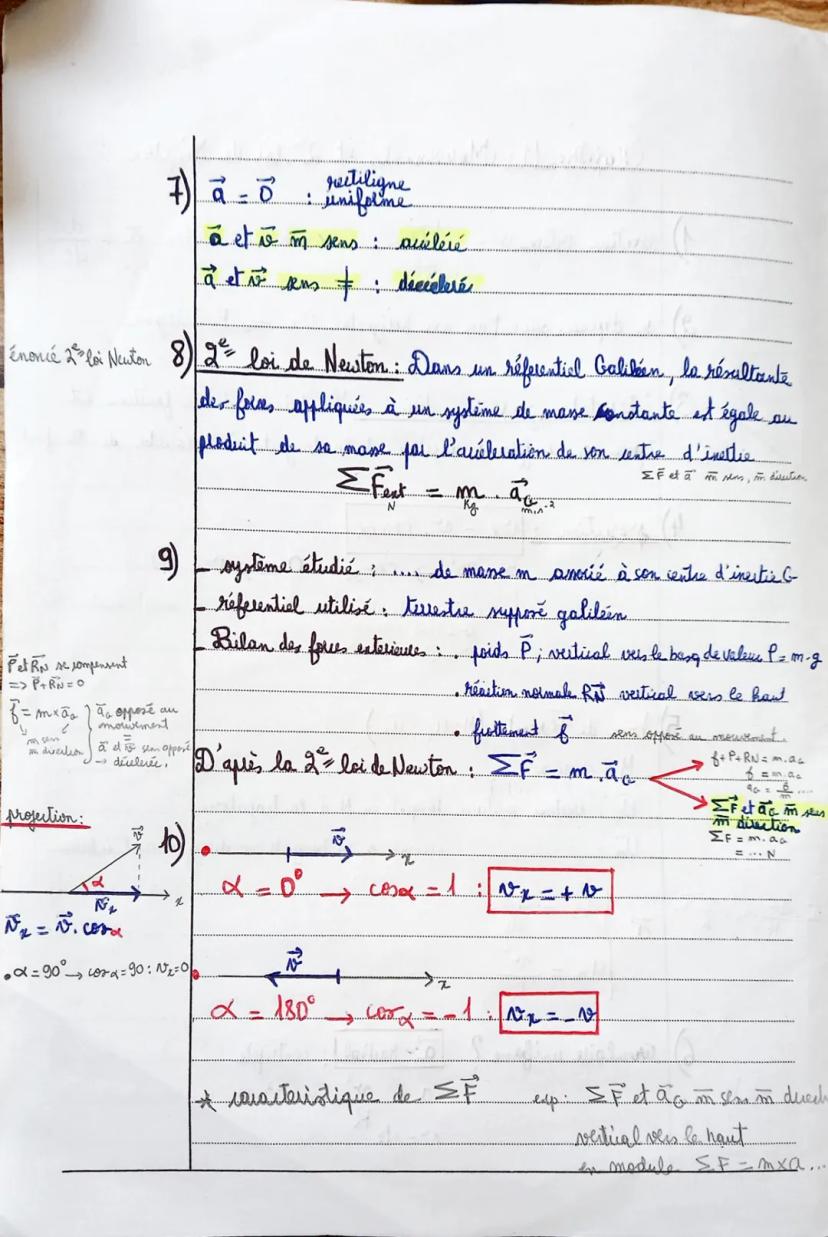 7) a⃗ = 0⃗ : rectiligne uniforme
a⃗ et v⃗ m̄ sens : accéléré
a⃗ et v⃗ sens ≠ : décéléré
énoncé 2e loi Newton
8) 2e loi de Newton : Dans un référentiel Galiléen, la résultante
des forces appliquées à un système de masse constante est égale au
produit de sa masse par l'accéleration de son centre d'inertie
ΣF⃗ et a⃗ m̄ sens, m̄ direction
ΣF⃗ext = m . a⃗G
N Kg m.s⁻²
9) - système étudié : .... de masse m associé à son centre d'inertie G
- référentiel utilisé : terrestre supposé galiléen
- Bilan des forces exterieures : . poids P⃗ ; vertical vers le bas, de valeur P = m.g
. réaction normale R⃗N vertical vers le haut
. frottement f⃗ sens opposé au mouvement.
P⃗ et R⃗N se compensent
=> P⃗ + R⃗N = 0
f⃗ = m × a⃗G
m̄ sens
m̄ direction
a⃗G opposé au
mouvement
a⃗ et v⃗ sens opposé
→ décélérée.
D'après la 2e loi de Newton : ΣF⃗ = m . a⃗G
f + P + RN = m.aG
f = m.aG
aG = f/m ....
ΣF⃗ et a⃗G m̄ sens
m̄ direction
ΣF = m.aG
= ... N
projection :
v⃗
α
v⃗x x
v⃗x = v⃗ . cosα
. α = 90° → cosα = 90 : vx = 0
10) v⃗ x
α = 0° → cosα = 1 : vx = + v
v⃗ x
α = 180° → cosα = -1 : vx = - v
* caractéristique de ΣF⃗ exp : ΣF⃗ et a⃗G m̄ sens m̄ direct
vertical vers le haut
en module ΣF = m×a ...